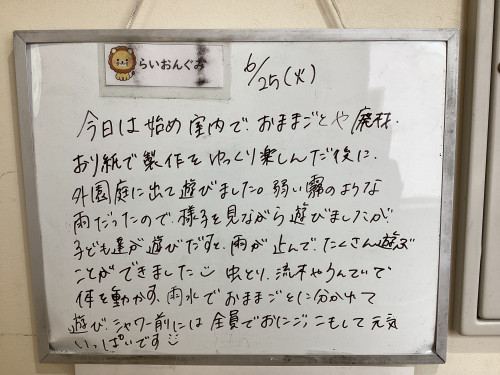 らいおんぐみ
6/25(火)
今日は始め室内で、おままごとや廃材、
おり紙で製作をゆっくり楽しんだ後に、
外園庭に出て遊びました。弱い霧のような
雨だったので、様子を見ながら遊びましたが、
子ども達が遊びだすと、雨が止んで、たくさん遊ぶ
ことができました 虫とり、流木やうんていで
体を動かす、雨水でおままごとに分かれて
遊び、シャワー前には全員でおにごっこもして元気
いっぱいです